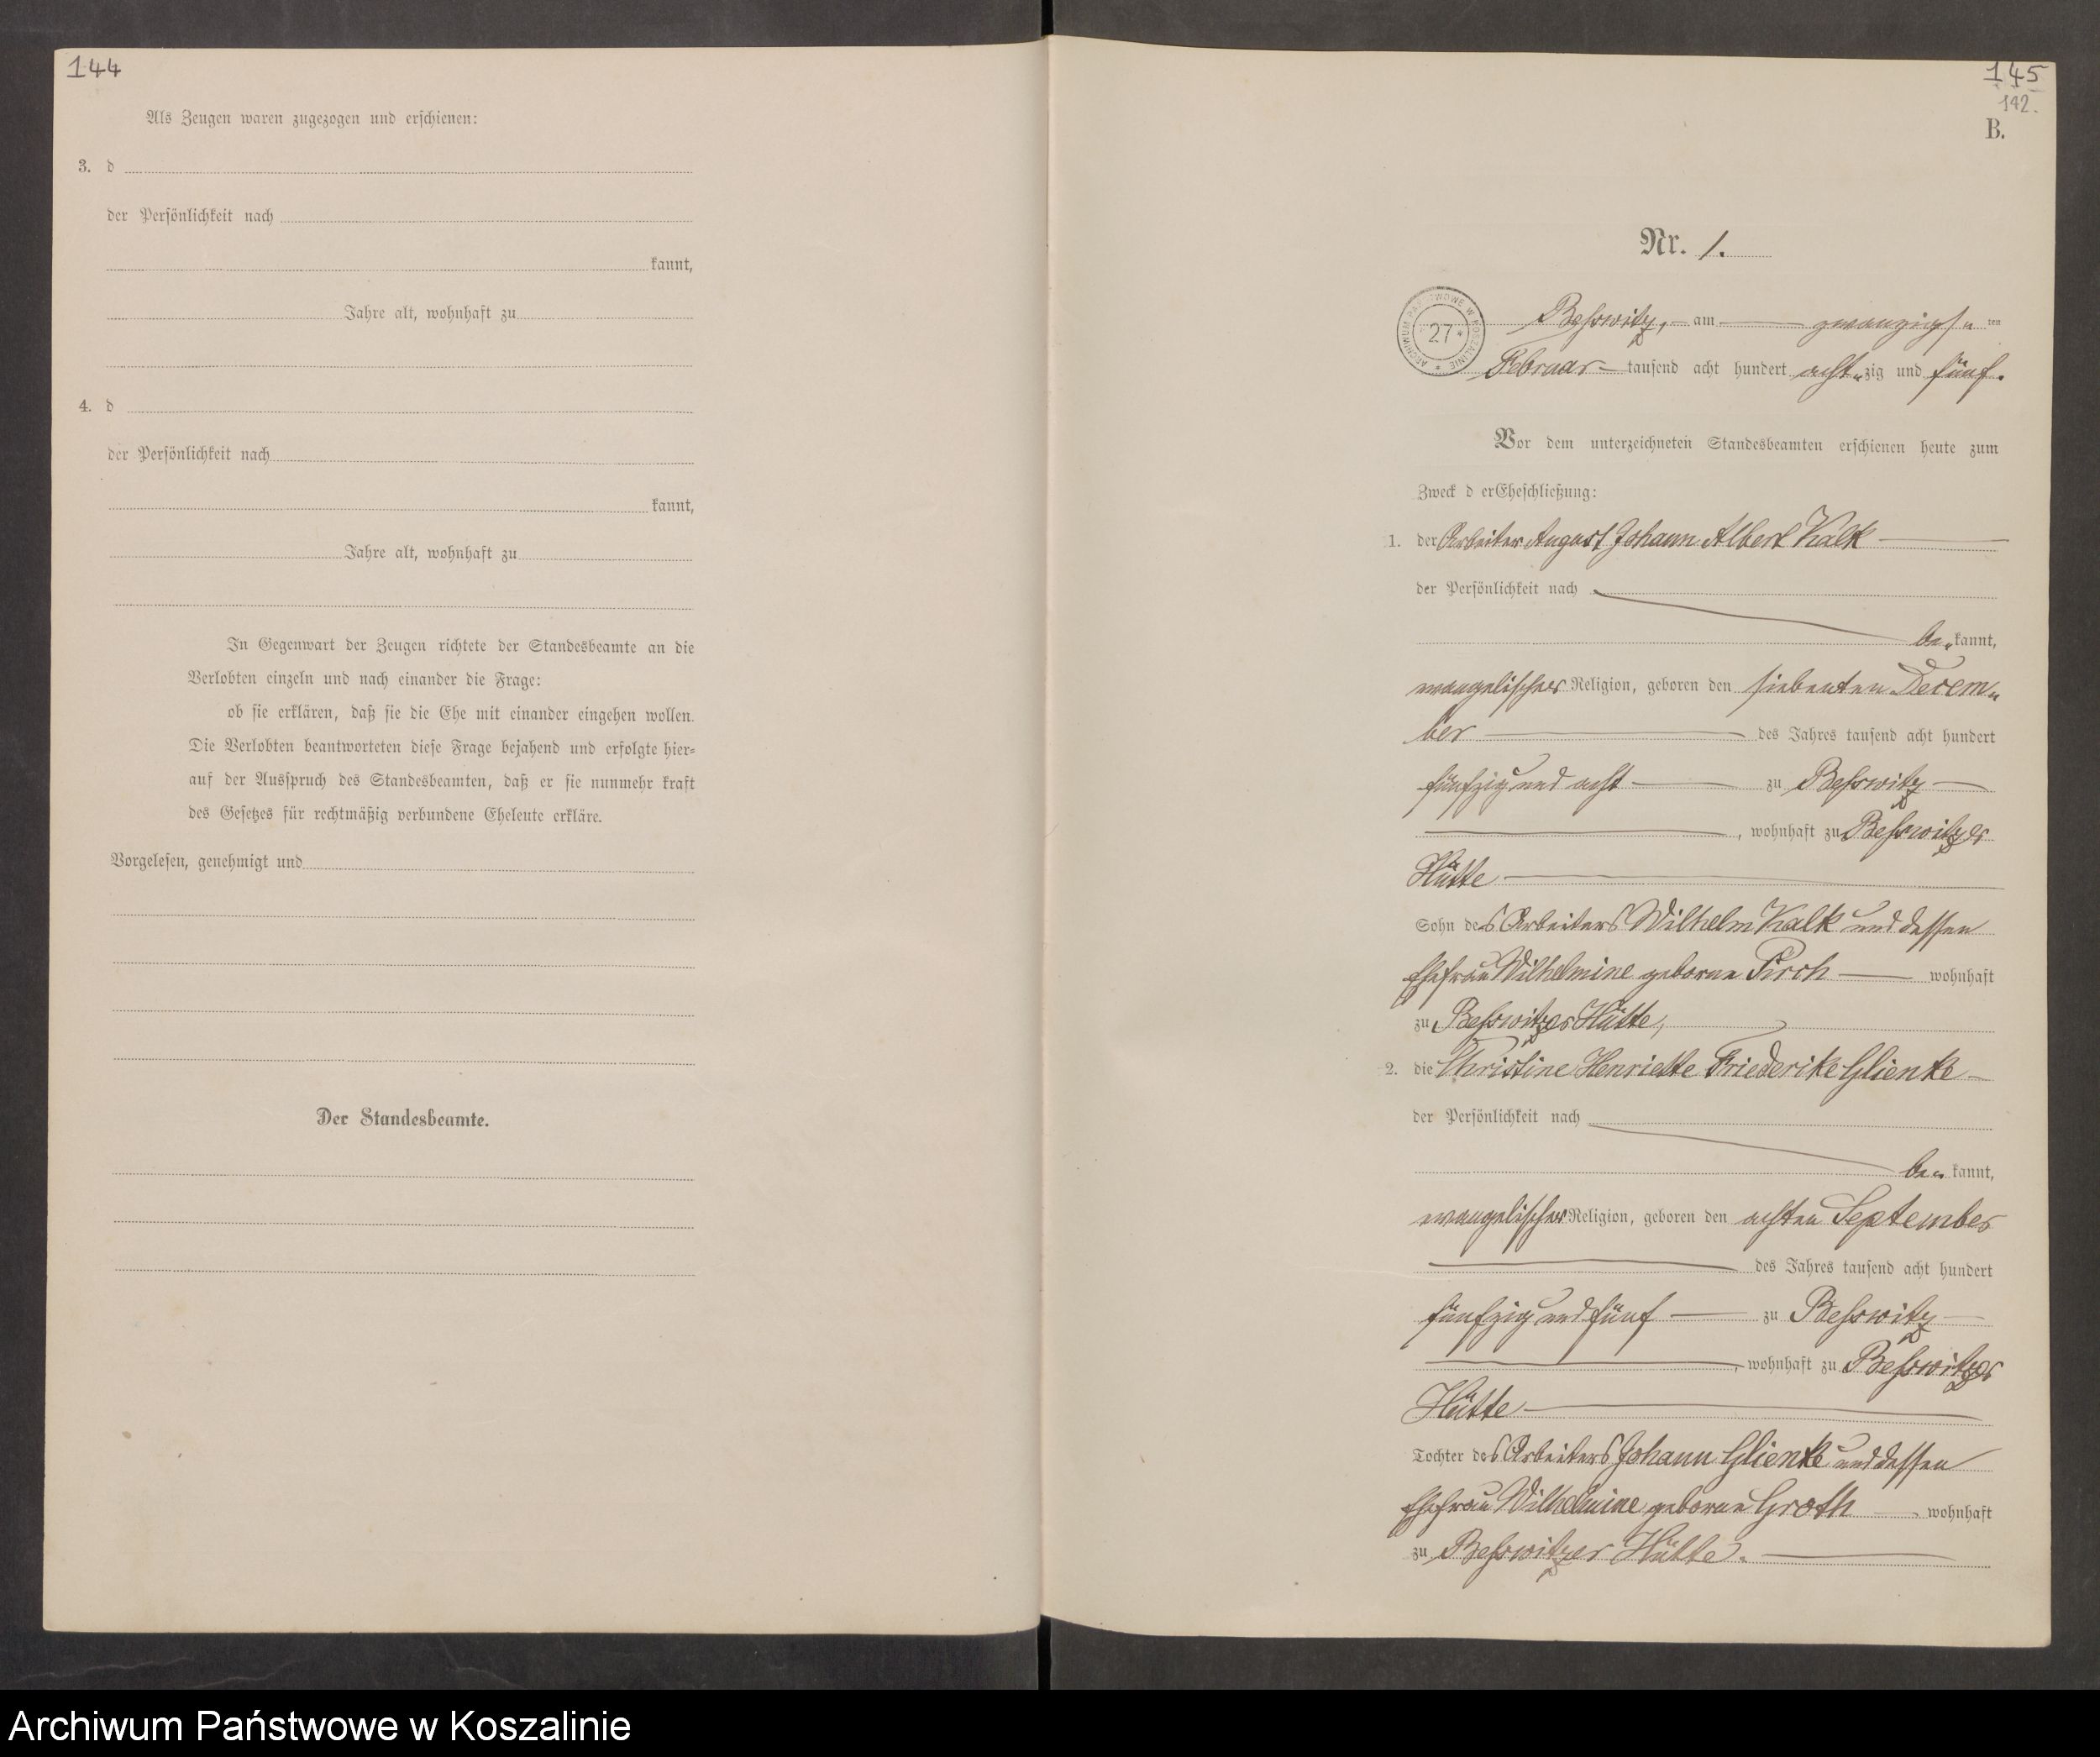 144
Als Zeugen waren zugezogen und erschienen:
3. d
der Persönlichkeit nach
kannt,
Jahre alt, wohnhaft zu
4. d
der Persönlichkeit nach
kannt,
Jahre alt, wohnhaft zu
In Gegenwart der Zeugen richtete der Standesbeamte an die
Verlobten einzeln und nach einander die Frage:
ob sie erklären, daß sie die Ehe mit einander eingehen wollen.
Die Verlobten beantworteten diese Frage bejahend und erfolgte hier=
auf der Ausspruch des Standesbeamten, daß er sie nunmehr kraft
des Gesetzes für rechtmäßig verbundene Eheleute erkläre.
Vorgelesen, genehmigt und
Der Standesbeamte.
145
142.
B.
Nr. 1.
ARCHIWUM PAŃSTWOWE W KOSZALINIE * 27 *
Beßwitz, am zwanzigs„ ten
Februar tausend acht hundert acht„zig und fünf.
Vor dem unterzeichneten Standesbeamten erschienen heute zum
Zweck d erEheschließung:
1. der Arbeiter August Johann Albert Kalk
der Persönlichkeit nach
be„kannt,
evangelischer Religion, geboren den siebenten Decem„
ber des Jahres tausend acht hundert
fünfzig und acht zu Beßwitz
, wohnhaft zu Beßwitzer
Hütte
Sohn des Arbeiters Wilhelm Kalk und dessen
Ehefrau Wilhelmine geborne Pirch wohnhaft
zu Beßwitzer Hütte,
2. die Christine Henriette Friederike Glienke
der Persönlichkeit nach
be„kannt,
evangelischer Religion, geboren den achten September
des Jahres tausend acht hundert
fünfzig und fünf zu Beßwitz
, wohnhaft zu Beßwitzer
Hütte
Tochter des Arbeiters Johann Glienke und dessen
Ehefrau Wilhelmine geborne Groth wohnhaft
zu Beßwitzer Hütte.
Archiwum Państwowe w Koszalinie